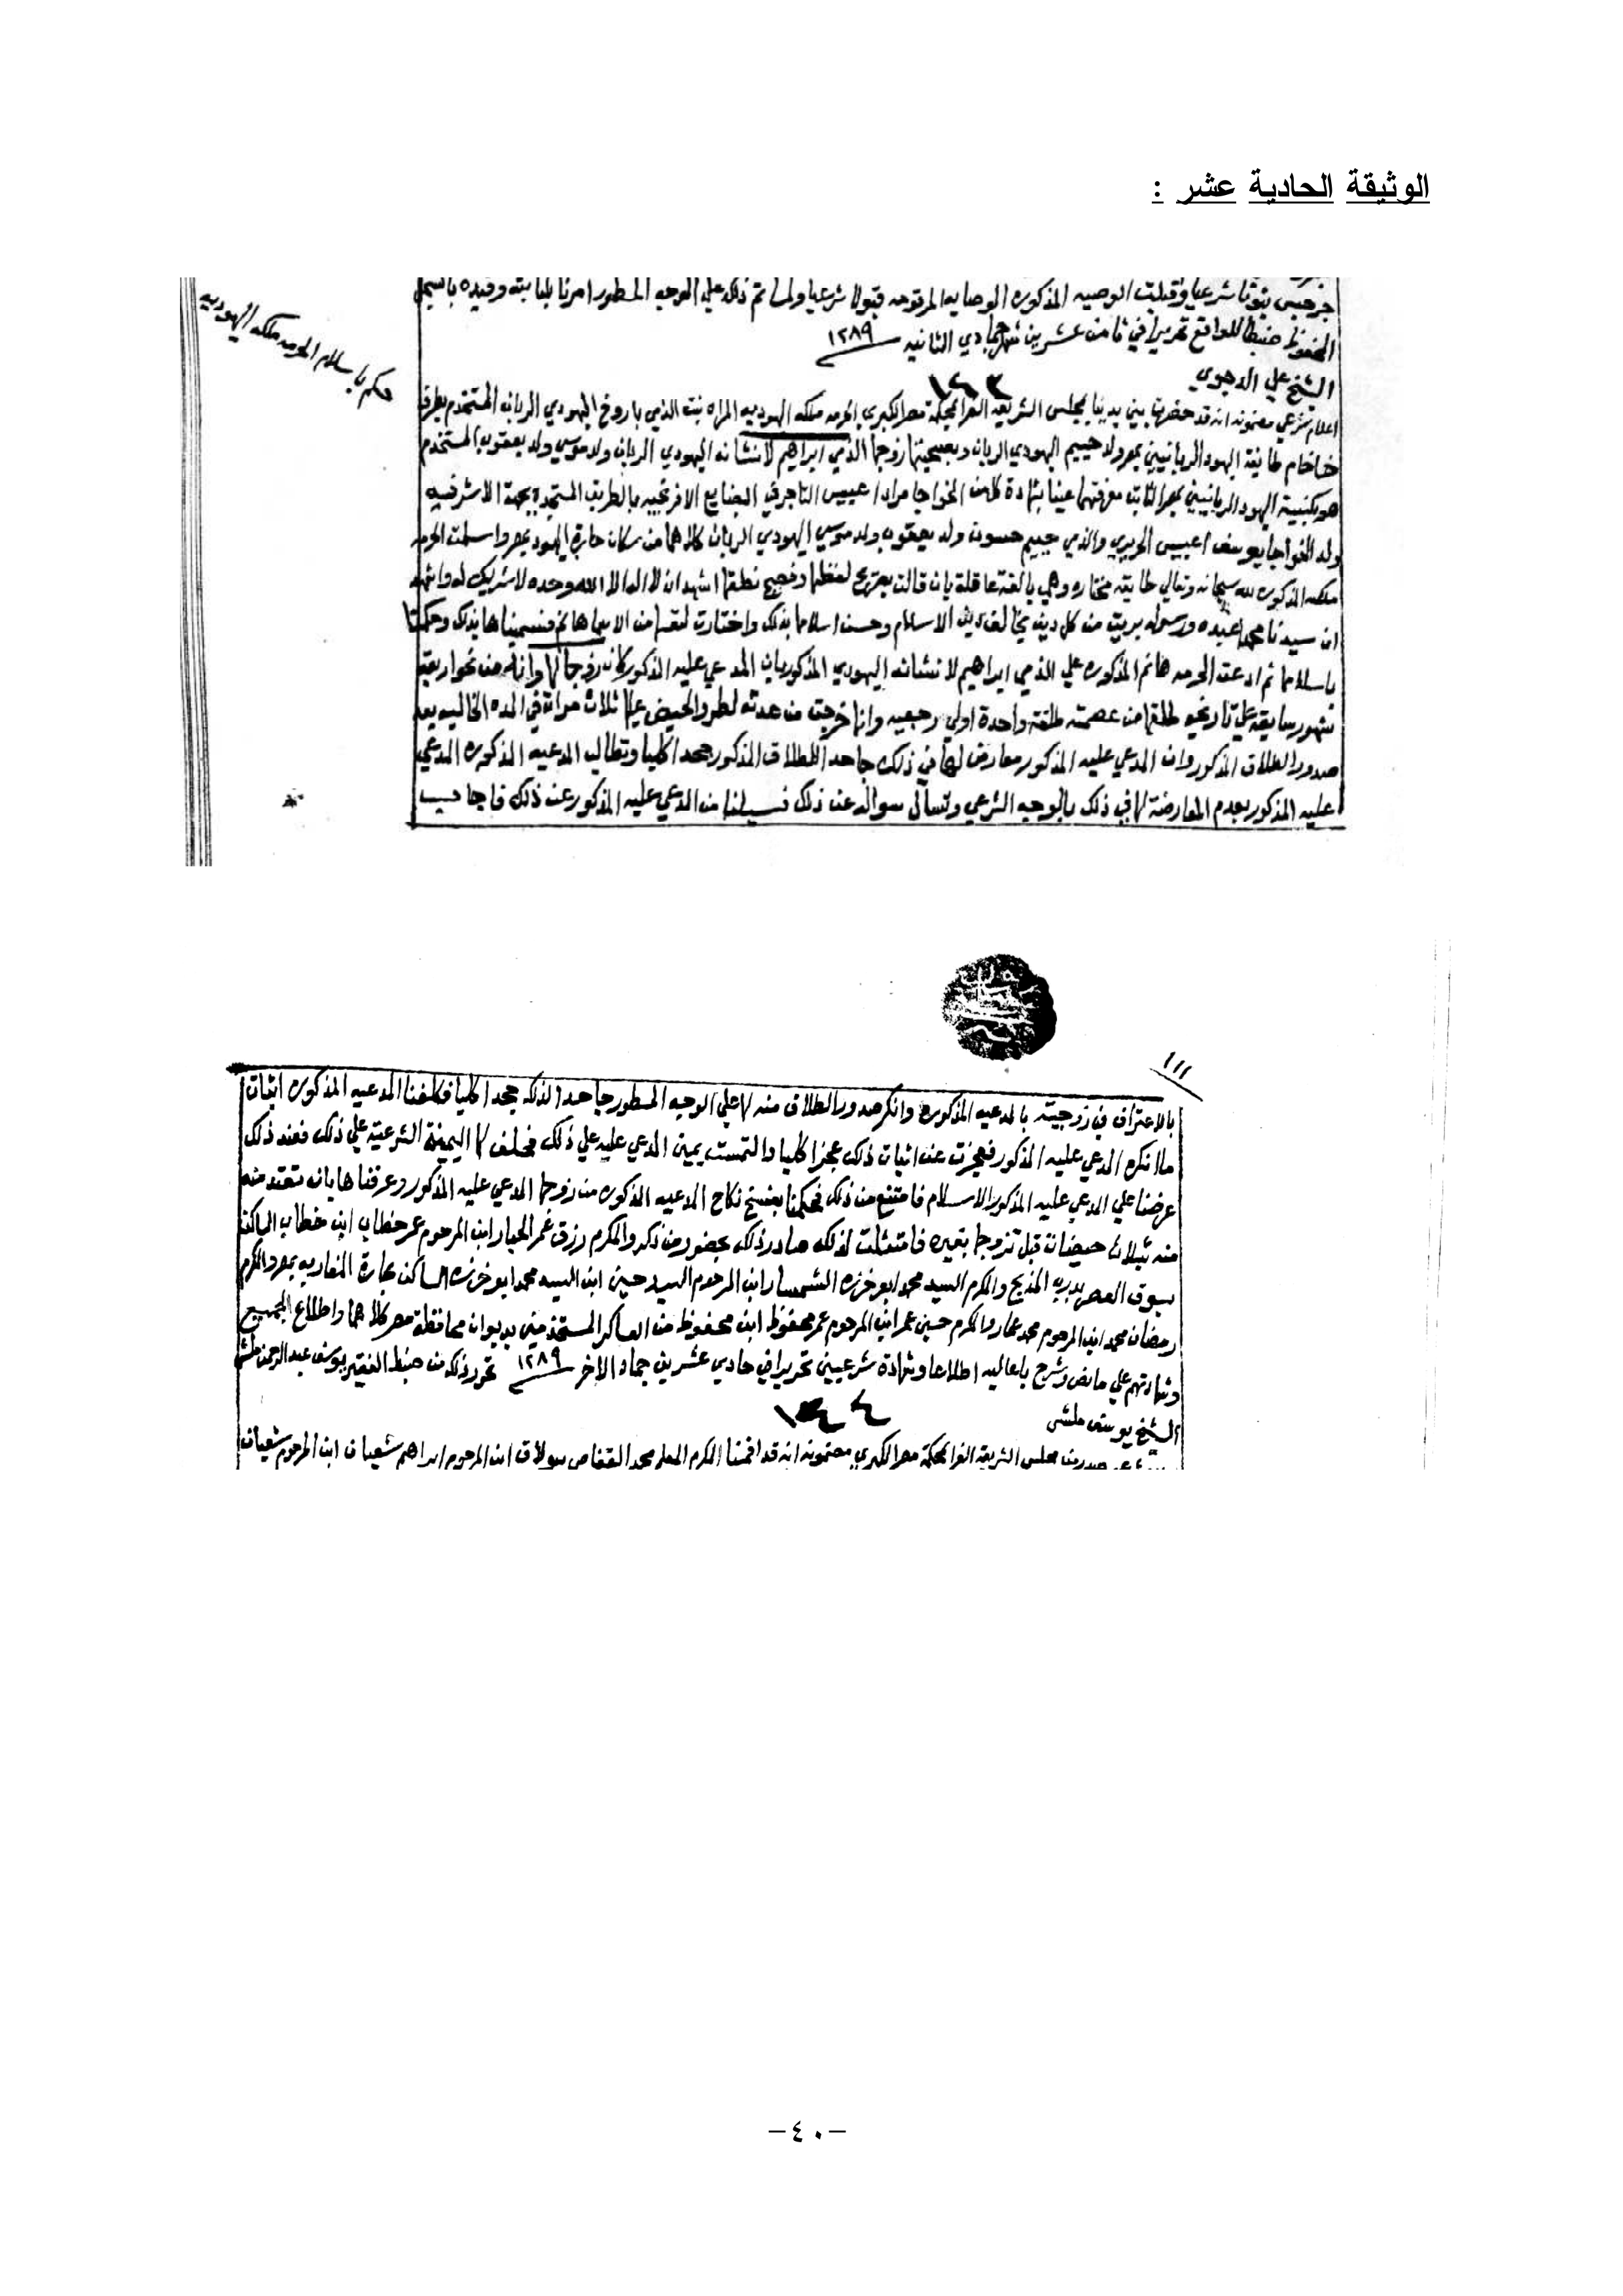 الوثيقة الحادية عشر :
جرجس ثبوتا شرعيا وقبلت الوصيه المذكوره الوصايه المرقومه قبولا شرعيا ولما تم ذلك علي الوجه المسطور امرنا بكتابته وقيده بالسجل
المحفوظ ضبطا للواقع تحريرا في ثامن عشرين شهر جمادي الثانيه ١٢٨٩
الشيخ علي الدجوي
١٤٣
حكم باسلام الحرمه ملكه اليهوديه
اعلام شرعي مضمونه انه قد حضر بين يدينا بمجلس الشريعه الغرا بمحكمة مصر الكبري الحرمه ملكه اليهوديه المراه بنت الذمي باروخ اليهودي الربان المستخدم بطرف
خاخام طايفة اليهود الربانيين بمصر ولد حييم اليهودي الربان وبصحبتها زوجها الذمي ابراهيم لانشانه اليهودي الربان ولد موسي ولد يعقوب المستخدم
هو بكنيسة اليهود الربانيين بمصر الثابت معرفتهما عينا بشهادة كل من الخواجا مراد اعبيس التاجر في البضايع الافرنجيه بالطريق المستجده بجهة الاشرفيه
ولد الخواجا يوسف اعبيس الحريري والذمي حييم حسون ولد يعقوب ولد موسي اليهودي الربان كلاهما من سكان حارة اليهود بمصر واسلمت الحرمه
ملكه المذكوره لله سبحانه وتعالي طايعة مختاره وهي بالغة عاقلة بان قالت بصريح لفظها وفصيح نطقها اشهد ان لا اله الا الله وحده لا شريك له واشهد
ان سيدنا محمدا عبده ورسوله بريت من كل دين يخالف دين الاسلام وحسن اسلامها بذلك واختارت لنفسها من الاسما هانم فسميناها بذلك وحكمنا
باسلامها ثم ادعت الحرمه هانم المذكوره علي الذمي ابراهيم لانشانه اليهودي المذكور بان المدعي عليه المذكور كان زوجا لها وانه من نحو اربعة
شهور سابقة علي تاريخه طلقها من عصمته طلقة واحدة اولي رجعيه وانها خرجت من عدته لطرو الحيض عليها ثلاث مرات في المده الخاليه بعد
صدور الطلاق المذكور وان المدعي عليه المذكور معارض لها في ذلك جاحد الطلاق المذكور جحدا كليا وتطالب المدعيه المذكوره المدعي
عليه المذكور بعدم المعارضة لها في ذلك بالوجه الشرعي وتسال سواله عن ذلك فسيلنا من المدعي عليه المذكور عن ذلك فاجاب
١١١
بالاعتراف في زوجيته بالمدعيه المذكوره وانكر صدور الطلاق منه لها علي الوجه المسطور جاحدا لذلك جحدا كليا فكلفنا المدعيه المذكوره اثبات
ما انكره المدعي عليه المذكور فعجزت عن اثبات ذلك عجزا كليا والتمست يمين المدعي عليه علي ذلك فحلف لها اليمين الشرعيه علي ذلك فعند ذلك
عرضنا علي المدعي عليه المذكور الاسلام فامتنع من ذلك فحكمنا بفسخ نكاح المدعيه المذكوره من زوجها المدعي عليه المذكور وعرفناها بانه تعتد منه
منه بثلاث حيضات قبل تزوجها بغيره فامتثلت لذلك صدر ذلك بحضور من ذكر والمكرم رزق عمر الجيار ابن المرحوم عمر خطاب ابن خطاب الساكن
بسوق العصر بدرب المذبح والمكرم السيد محمد ابو خزره السمسار ابن المرحوم السيد حسين ابن السيد محمد ابو خزره الساكن بحارة المغاربه بمصر والمكرم
رمضان محمد ابن المرحوم محمد عمار والمكرم حسين عمر ابن المرحوم عمر محفوظ ابن محفوظ من العساكر المستخدمين بديوان محافظة مصر كلاهما واطلاع الجميع
وشهادتهم علي ما نص وشرح باعاليه اطلاعا وشهادة شرعيين تحريرا في حادي عشرين جماد الاخر ١٢٨٩ تحرر ذلك من ضبط الفقير يوسف عبد الرحمن ملش
الشيخ يوسف ملش
١٤٤
صدر من مجلس الشريعه الغرا بمحكمة مصر الكبري مضمونه انه قد اقمنا المكرم المعلم محمد القفاص ببولاق ابن المرحوم ابراهيم شعبان ابن المرحوم شعبان
-٤٠-